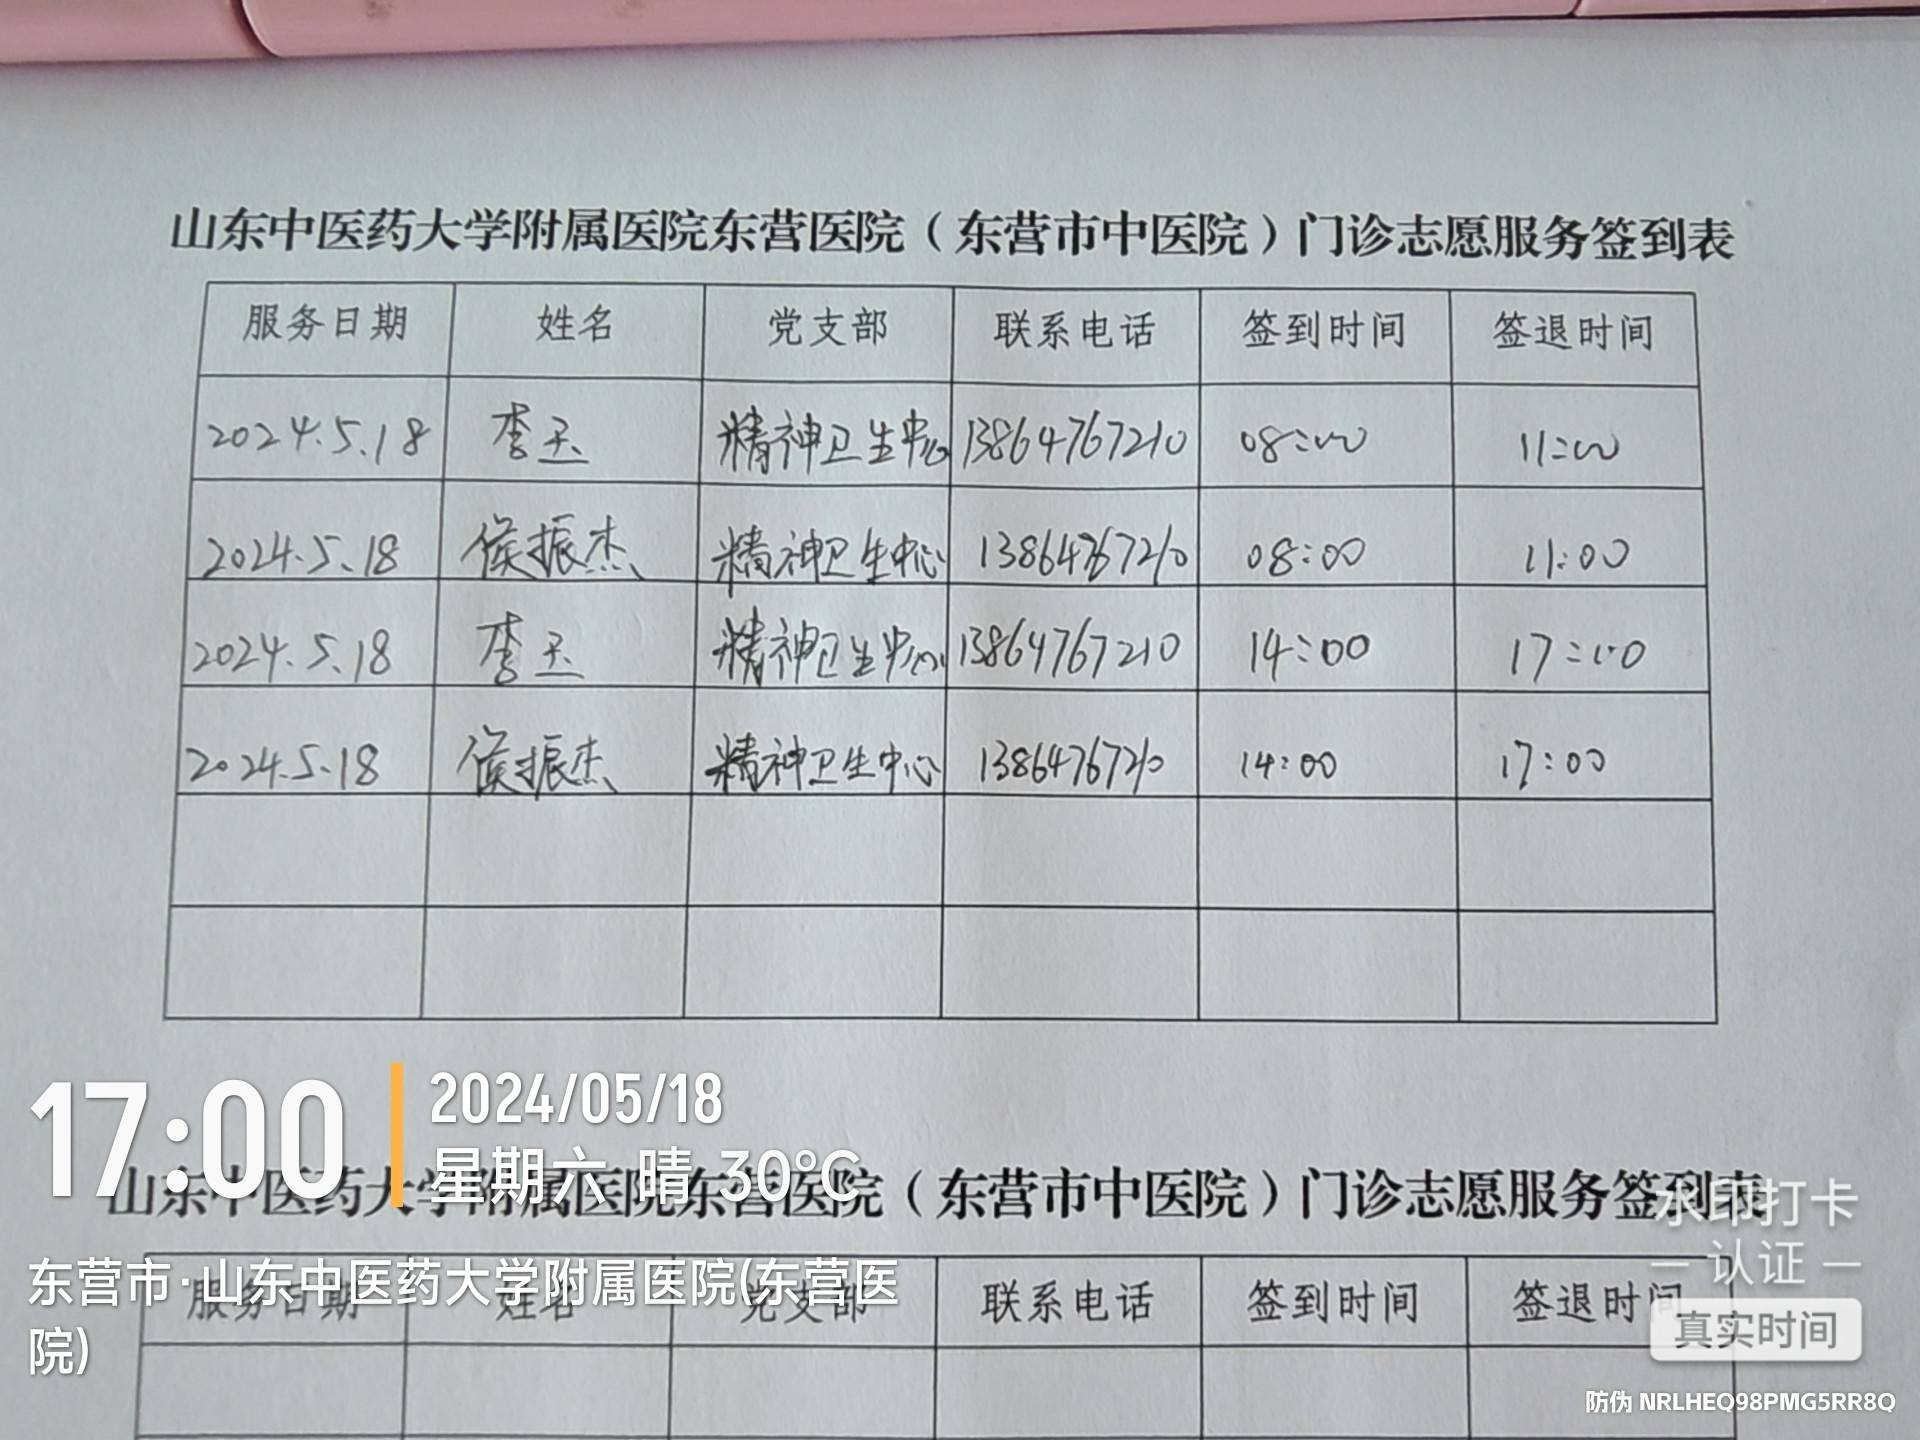 山东中医药大学附属医院东营医院（东营市中医院）门诊志愿服务签到表
服务日期 姓名 党支部 联系电话 签到时间 签退时间
2024.5.18 李玉 精神卫生中心 13864767210 08:00 11:00
2024.5.18 侯振杰 精神卫生中心 13864767210 08:00 11:00
2024.5.18 李玉 精神卫生中心 13864767210 14:00 17:00
2024.5.18 侯振杰 精神卫生中心 13864767210 14:00 17:00
17:00
2024/05/18
星期六 晴 30°C
山东中医药大学附属医院东营医院（东营市中医院）门诊志愿服务签到表
水印打卡
认证
东营市·山东中医药大学附属医院(东营医
院)
服务日期 姓名 党支部 联系电话 签到时间 签退时间
真实时间
防伪 NRLHEQ98PMG5RR8Q